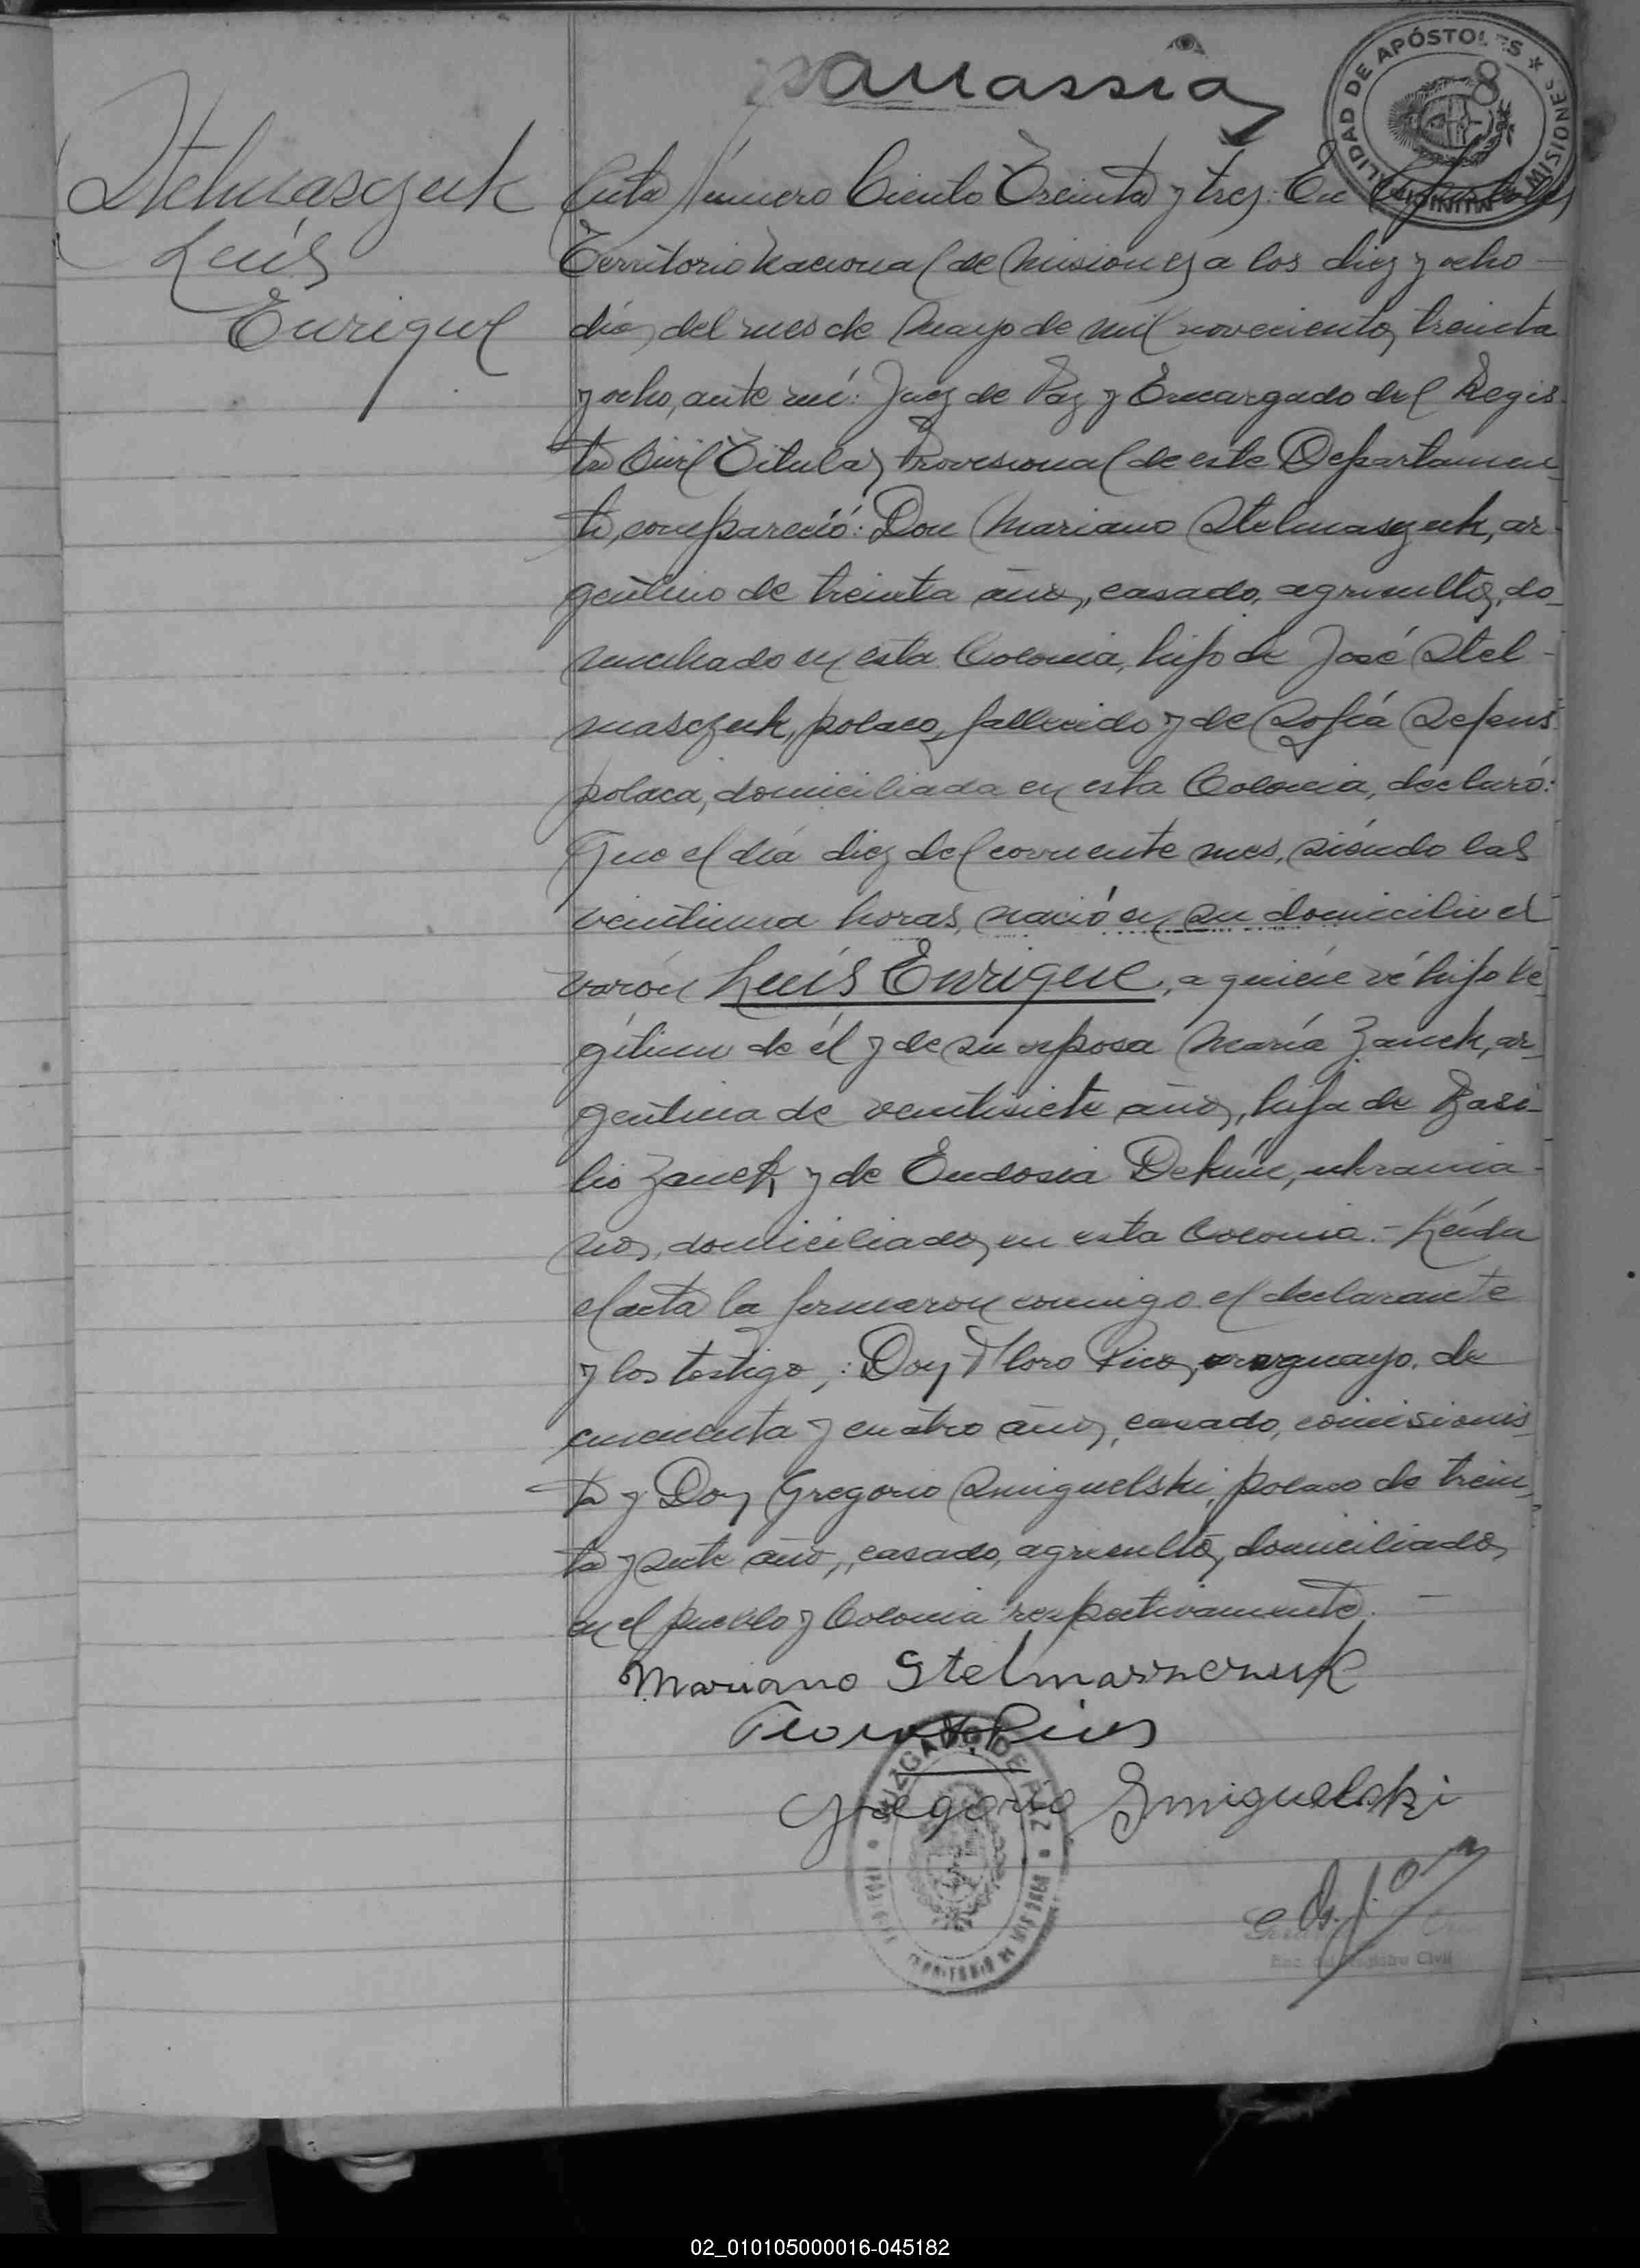 8
MUNICIPALIDAD DE APÓSTOLES * MISIONES
Stelmasczuk
Luís
Enrique
Acta Número Ciento Treinta y tres: En Apóstoles
Territorio Nacional de Misiones a los diez y ocho
días del mes de Mayo de mil novecientos treinta
y ocho, ante mí: Juez de Paz y Encargado del Regis-
tro Civil Titular Provisional de este Departamen-
to, compareció: Don Mariano Stelmasczuk, ar-
gentino de treinta años, casado, agricultor, do-
miciliado en esta Colonia, hijo de José Stel-
masczuk, polaco, fallecido y de Sofía
polaca, domiciliada en esta Colonia, declaró:
Que el día diez del corriente mes, siéndo las
ventiuna horas, nació en su domicilio el
varón Luís Enrique, a quién vé hijo le-
gítimo de él y de su esposa María Zauek, ar-
gentina de ventisiete años, hija de Basi-
lio Zauek y de Eudosia Dekun, ukrania-
nos, domiciliados en esta Colonia.- Leída
el acta la firmaron conmigo el declarante
y los testigos: Don Floro Rios, uruguayo, de
cincuenta y cuatro años, casado, comisionis-
ta y Don Gregorio Smiguelski, polaco de trein-
ta y siete años, casado, agricultor, domiciliados
en el pueblo y Colonia respectivamente. -
Mariano Stelmaszczuk
Floro Rios
Gregorio Smiguelski
JUZGADO DE PAZ
TERRITORIO DE MISIONES
Enc. del Registro Civil
02_010105000016-045182